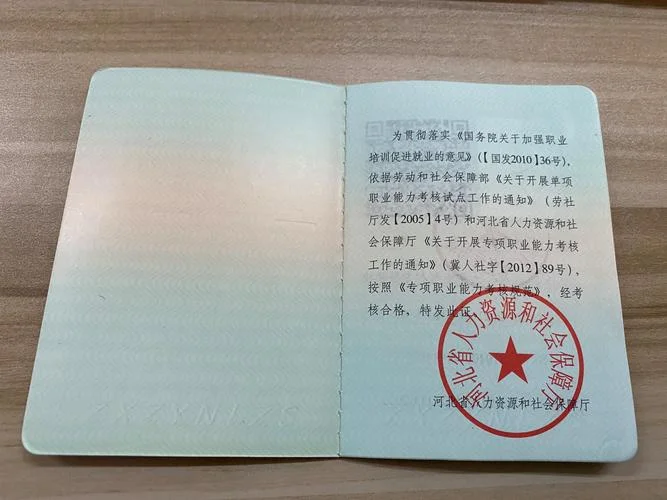 为贯彻落实《国务院关于加强职业
培训促进就业的意见》(【国发2010】36号),
依据劳动和社会保障部《关于开展单项
职业能力考核试点工作的通知》(劳社
厅发【2005】4号)和河北省人力资源和社
会保障厅《关于开展专项职业能力考核
工作的通知》(冀人社字【2012】89号),
按照《专项职业能力考核规范》,经考
核合格,特发此证。
河北省人力资源和社会保障厅
河北省人力资源和社会保障厅